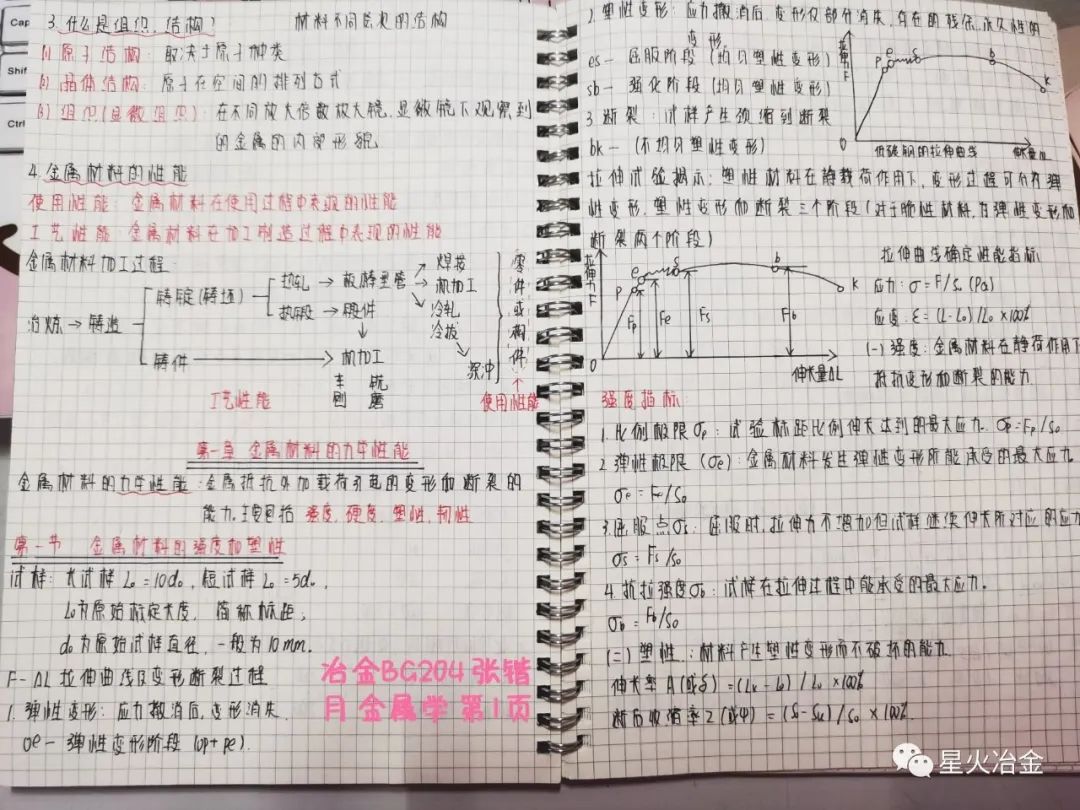 Cap
Shift
Ctrl
3.什么是组织、结构? 材料不同层次的结构
(1) 原子结构: 取决于原子种类
(2) 晶体结构: 原子在空间的排列方式
(3) 组织(显微组织): 在不同放大倍数放大镜、显微镜下观察到
的金属的内部形貌
4.金属材料的性能
使用性能: 金属材料在使用过程中表现的性能
工艺性能: 金属材料在加工制造过程中表现的性能
金属材料加工过程:
冶炼→铸造
铸锭(铸坯)
热轧→板棒型管
热锻→锻件
焊接
机加工
冷轧
冷拔
深冲
零件或构件
铸件→机加工
车 铣
刨 磨
工艺性能
使用性能
第一章 金属材料的力学性能
金属材料的力学性能: 金属抵抗外加载荷引起的变形和断裂的
能力,主要包括 强度,硬度,塑性,韧性
第一节 金属材料的强度和塑性
试样: 长试样 L₀=10d₀, 短试样 L₀=5d₀,
L₀为原始标定长度, 简称标距,
d₀为原始试样直径, 一般为10mm.
F-ΔL 拉伸曲线及变形断裂过程
1. 弹性变形: 应力撤消后,变形消失.
oe- 弹性变形阶段 (op+pe).
冶金BG204张锴
月金属学第1页
2.塑性变形: 应力撤消后 变形仅部分消失, 存在的残余、永久性的
变形,
es- 屈服阶段 (均匀塑性变形)
sb- 强化阶段 (均匀塑性变形)
3.断裂: 试样产生颈缩到断裂
bk- (不均匀塑性变形)
拉伸力F
p
e
s
b
k
0
低碳钢的拉伸曲线
伸长量ΔL
拉伸试验揭示: 塑性材料在静载荷作用下, 变形过程可分为弹
性变形、塑性变形和断裂三个阶段(对于脆性材料,有弹性变形和
断裂两个阶段)
拉伸力F
P
e
s
b
k
Fp
Fe
Fs
Fb
0
伸长量ΔL
拉伸曲线确定性能指标
应力: σ=F/S₀ (Pa)
应变: ε=(L-L₀)/L₀×100%
(一) 强度: 金属材料在静荷作用下
抵抗变形和断裂的能力
强度指标:
1.比例极限σp: 试验标距比例伸长达到的最大应力. σp=Fp/S₀
2.弹性极限(σe): 金属材料发生弹性变形所能承受的最大应力
σe=Fe/S₀
3.屈服点σs: 屈服时,拉伸力不增加但试样继续伸长所对应的应力
σs=Fs/S₀
4.抗拉强度σb: 试样在拉伸过程中能承受的最大应力.
σb=Fb/S₀
(二) 塑性: 材料产生塑性变形而不破坏的能力
伸长率 A(或δ)=(Lk-L₀)/L₀×100%
断后收缩率Z(或ψ)=(S₀-Sk)/S₀×100%
星火冶金